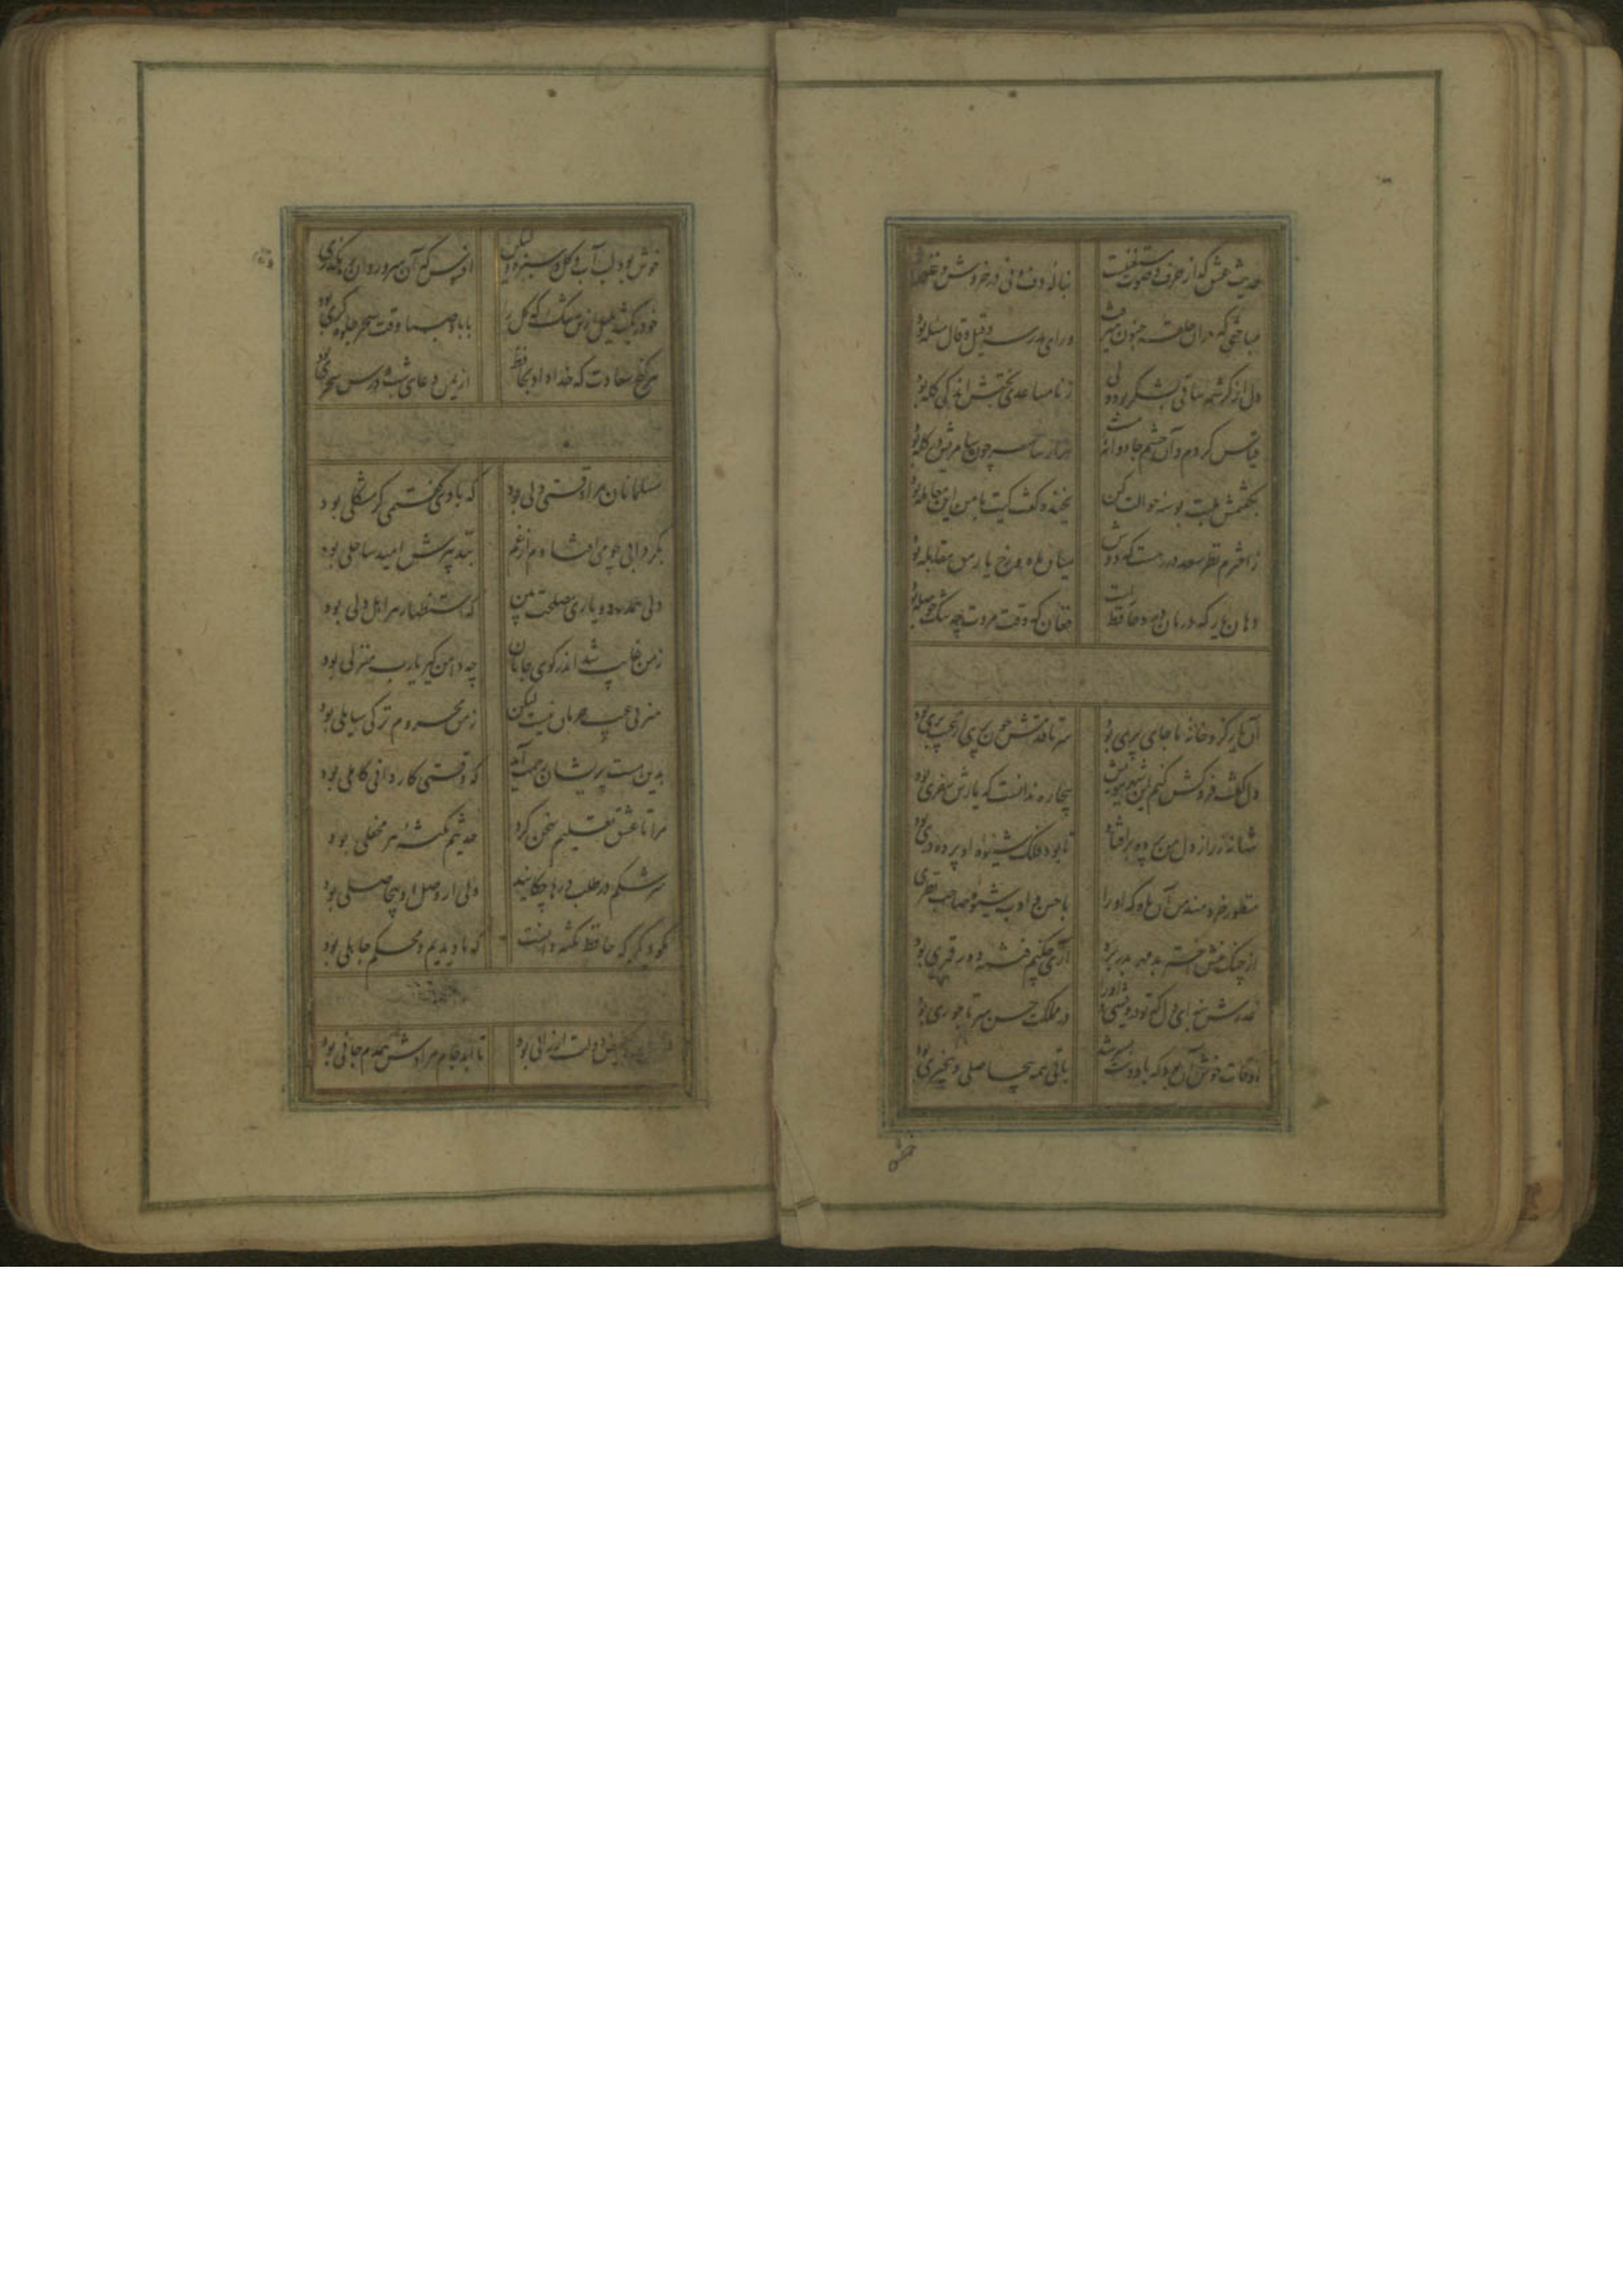 حدیث عشق که از حرف و صوت مستغنیست
بنالهٔ دف و نی در خروش و غلغله بود
مباحثی که در آن حلقهٔ جنون میرفت
ورای مدرسه و قیل و قال مسئله بود
دل از کرشمه ساقی بشکر بود ولی
ز نامساعدی بختش اندکی گله بود
قیاس کردم و آن چشم جادوانهٔ مست
هزار ساحر چون سامریش در گله بود
بگفتمش بلبت بوسهٔ حوالت کن
بخنده گفت کیت با من این معامله بود
ز اخترم نظر سعد در رهست که دوش
میان ماه و رخ یار من مقابله بود
دهان یار که درمان درد حافظ داشت
فغان که وقت مروت چه تنگ حوصله بود
آن یار کزو خانهٔ ما جای پری بود
سر تا قدمش چون پری از عیب بری بود
دل گفت فروکش کنم این شهر ببویش
بیچاره ندانست که یارش سفری بود
تنها نه ز راز دل من پرده برافتاد
تا بود فلک شیوهٔ او پرده دری بود
منظور خردمند من آن ماه که او را
با حسن ادب شیوهٔ صاحب نظری بود
از چنگ منش اختر بد مهر بدر برد
آری چکنم فتنهٔ دور قمری بود
عذرش بنه ای دل که تو درویشی و او را
در مملکت حسن سر تاجوری بود
اوقات خوش آن بود که با دوست بسر شد
باقی همه بیحاصلی و بیخبری بود
خوش
خوش بود لب آب و گل و سبزه ولیکن
افسوس که آن سرو روان رهگذری بود
خود را بکشد بلبل ازین رشک که گل را
با باد صبا وقت سحر جلوه گری بود
هر گنج سعادت که خدا داد بحافظ
از یمن دعای شب و درس سحری بود
مسلمانان مرا وقتی دلی بود
که با وی گفتمی گر مشکلی بود
بگردابی چو می افتادم از غم
بتدبیرش امید ساحلی بود
دلی همدرد و یاری مصلحت بین
که استظهار هر اهل دلی بود
ز من غایب شد اندر کوی جانان
چه دامن گیر یا رب منزلی بود
هنر بی عیب حرمان نیست لیکن
ز من محروم تر کی سایلی بود
بدین مست پریشان رحمت آرید
که وقتی کاردانی کاملی بود
مرا تا عشق تعلیم سخن کرد
حدیثم نکتهٔ هر محفلی بود
سرشکم در طلب درها چکانید
ولی از وصل او بیحاصلی بود
مگو دیگر که حافظ نکته دانست
که ما دیدیم و محکم جاهلی بود
دولت ارزانی بود
تا ابد جام مرادش همدم جانی بود